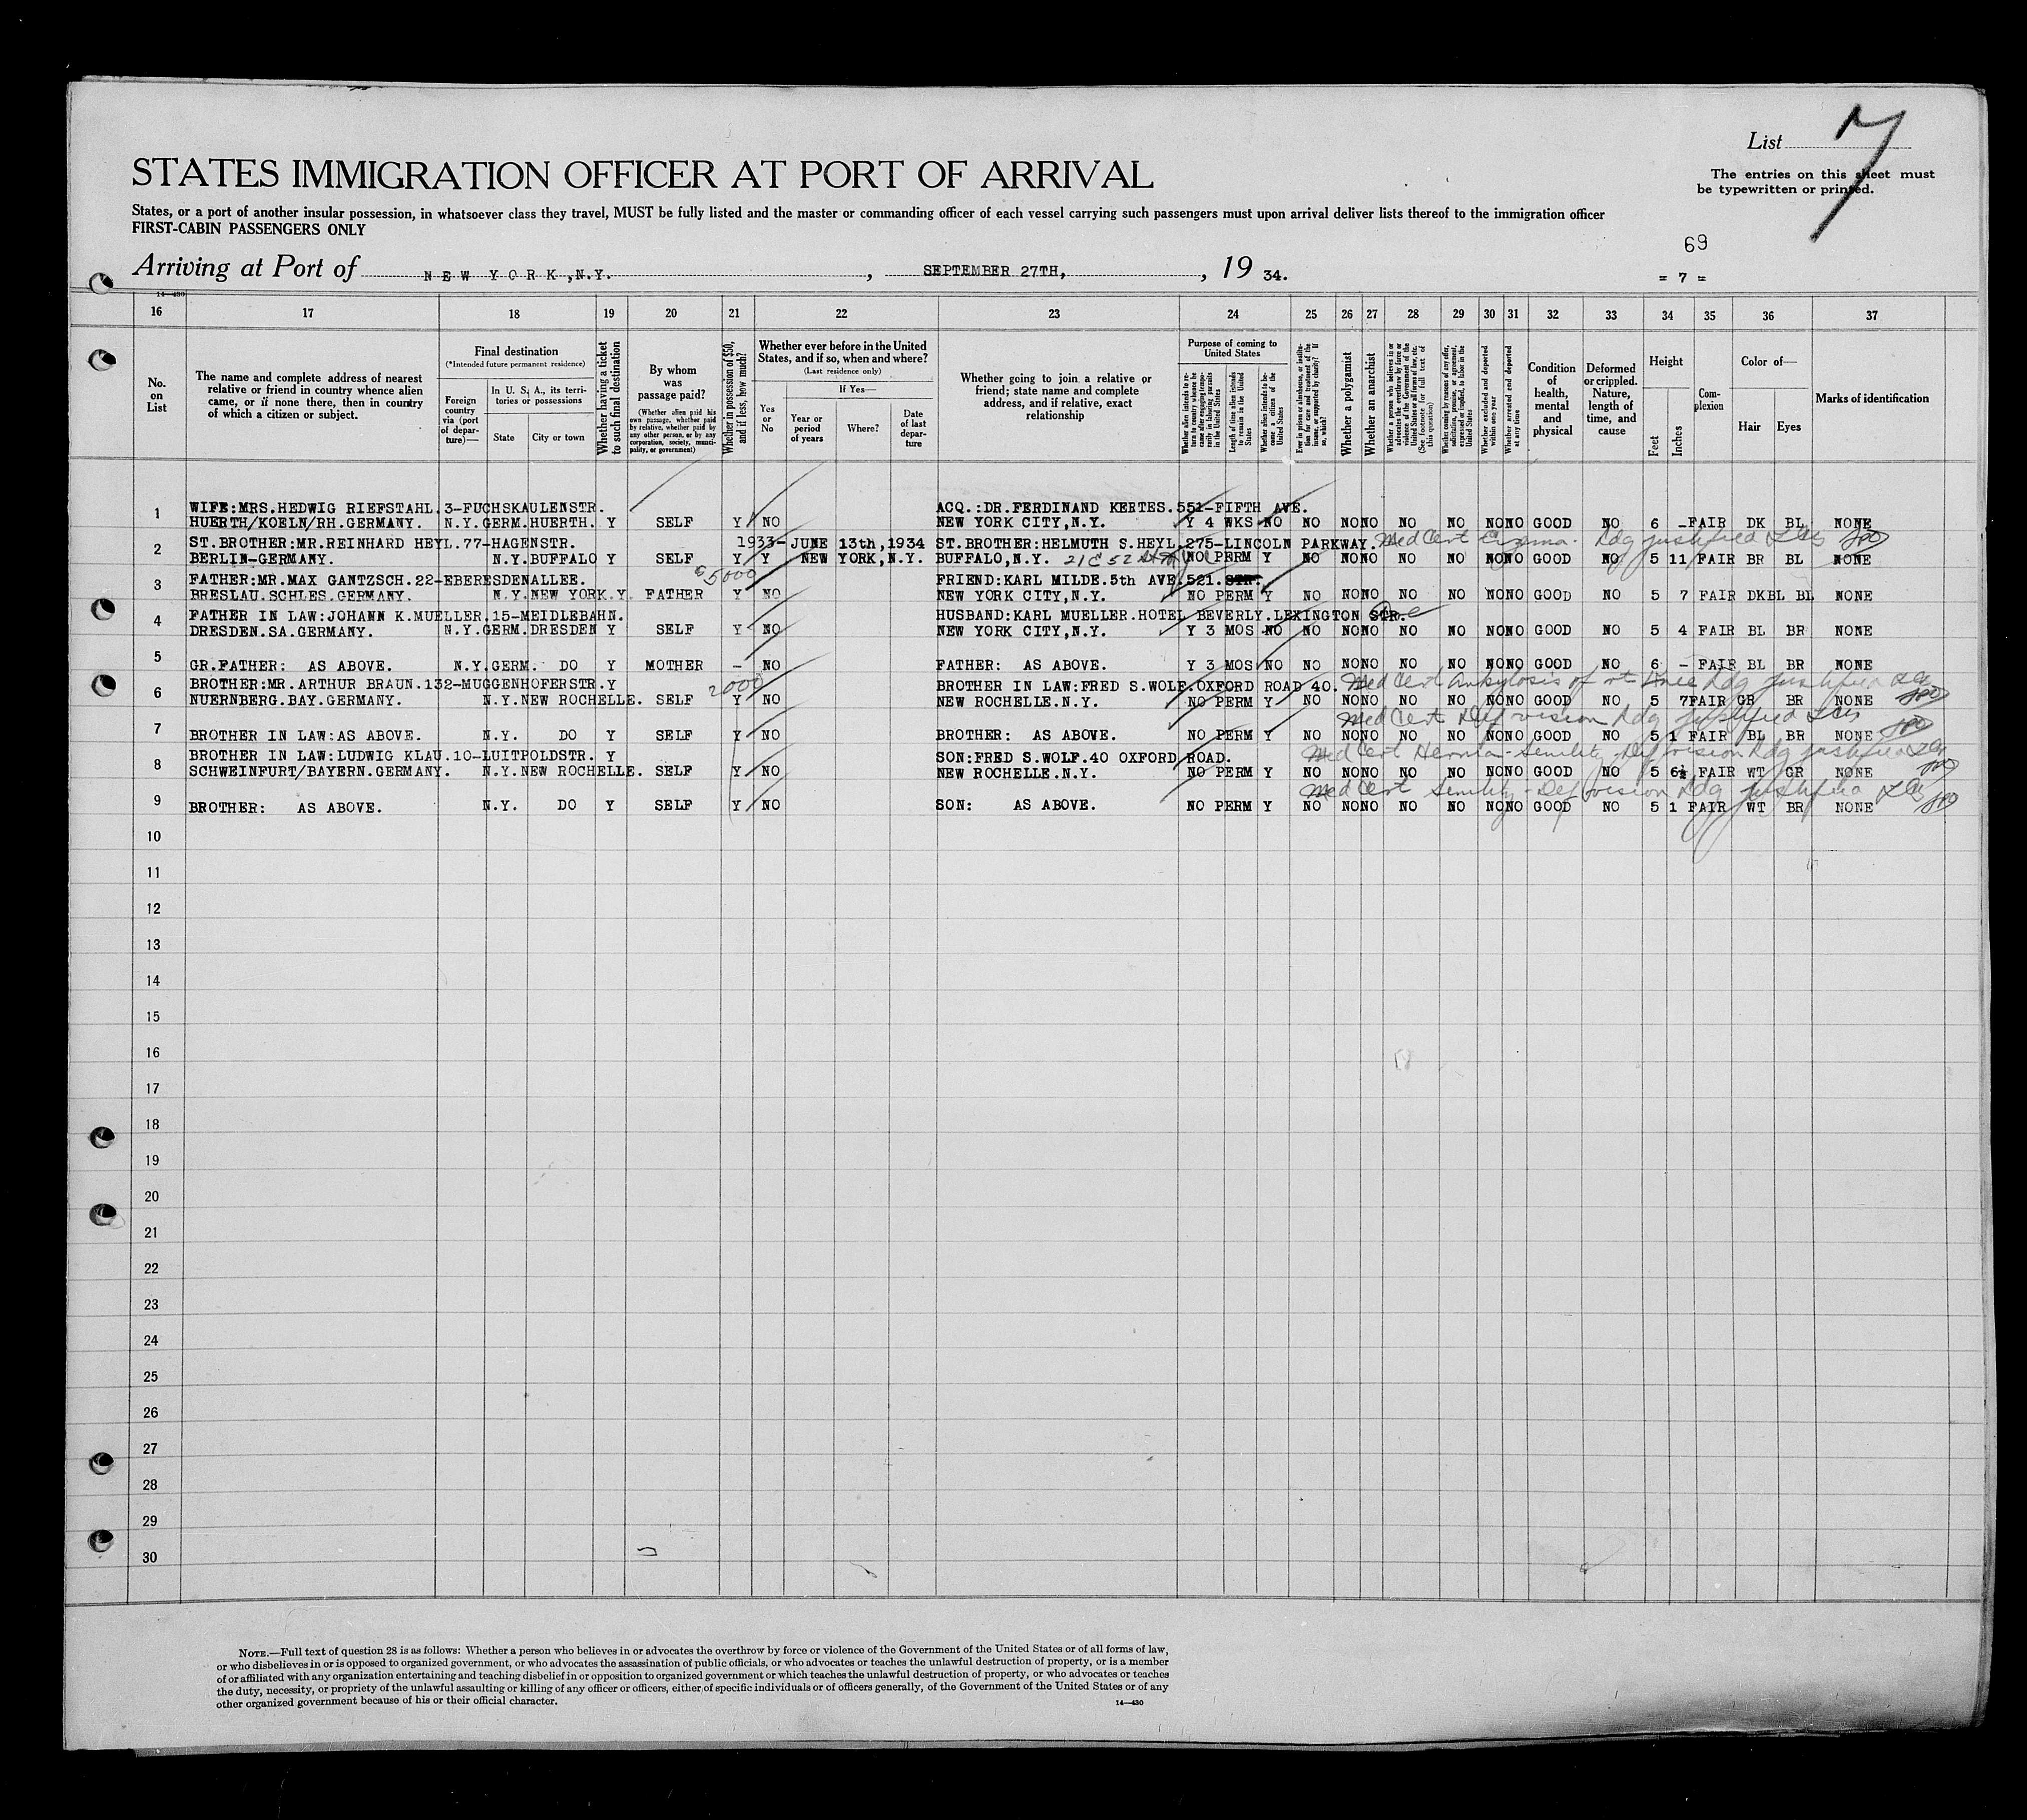 List 7
STATES IMMIGRATION OFFICER AT PORT OF ARRIVAL
The entries on this sheet must
be typewritten or printed.
States, or a port of another insular possession, in whatsoever class they travel, MUST be fully listed and the master or commanding officer of each vessel carrying such passengers must upon arrival deliver lists thereof to the immigration officer
FIRST-CABIN PASSENGERS ONLY
69
Arriving at Port of NEW YORK,N.Y. , SEPTEMBER 27TH, , 19 34.
= 7 =
14-430
16 17 18 19 20 21 22 23 24 25 26 27 28 29 30 31 32 33 34 35 36 37
No. on List
The name and complete address of nearest relative or friend in country whence alien came, or if none there, then in country of which a citizen or subject.
Final destination
(*Intended future permanent residence)
Foreign country via (port of departure)—
In U. S. A., its territories or possessions
State
City or town
Whether having a ticket to such final destination
By whom was passage paid?
(Whether alien paid his own passage, whether paid by relative, whether paid by any other person, or by any corporation, society, municipality, or government)
Whether in possession of $50, and if less, how much?
Whether ever before in the United States, and if so, when and where?
(Last residence only)
Yes or No
If Yes—
Year or period of years
Where?
Date of last departure
Whether going to join a relative or friend; state name and complete address, and if relative, exact relationship
Purpose of coming to United States
Length of time alien intends to remain in the United States
Whether alien intends to become a citizen of the United States
Whether a polygamist
Whether an anarchist
(See footnote for full text of this question)
Whether excluded and deported within one year
Whether arrested and deported at any time
Condition of health, mental and physical
Deformed or crippled. Nature, length of time, and cause
Height
Feet
Inches
Complexion
Color of—
Hair
Eyes
Marks of identification
WIFE:MRS.HEDWIG RIEFSTAHL.3-FUCHSKAULENSTR. ACQ.:DR.FERDINAND KERTES.551-FIFTH AVE.
1 HUERTH/KOELN/RH.GERMANY. N.Y.GERM.HUERTH. Y SELF Y NO NEW YORK CITY,N.Y. Y 4 WKS NO NO NO NO NO NO NO NO GOOD NO 6 - FAIR DK BL NONE
ST.BROTHER:MR.REINHARD HEYL.77-HAGENSTR. 1933-JUNE 13th,1934 ST.BROTHER:HELMUTH S.HEYL.275-LINCOLN PARKWAY. Med Cert Eczema. Ldg justified
2 BERLIN-GERMANY. N.Y.BUFFALO Y SELF Y Y NEW YORK,N.Y. BUFFALO,N.Y. 21 E 52 St NO PERM Y NO NO NO NO NO NO NO GOOD NO 5 11 FAIR BR BL NONE
FATHER:MR.MAX GANTZSCH.22-EBERESDENALLEE. 5000 FRIEND:KARL MILDE.5th AVE.521. STR.
3 BRESLAU.SCHLES.GERMANY. N.Y.NEW YORK.Y. FATHER Y NO NEW YORK CITY,N.Y. NO PERM Y NO NO NO NO NO NO NO GOOD NO 5 7 FAIR DKBL BL NONE
FATHER IN LAW:JOHANN K.MUELLER.15-MEIDLEBAHN. HUSBAND:KARL MUELLER.HOTEL BEVERLY.LEXINGTON STR. Ave
4 DRESDEN.SA.GERMANY. N.Y.GERM.DRESDEN Y SELF Y NO NEW YORK CITY,N.Y. Y 3 MOS NO NO NO NO NO NO NO NO GOOD NO 5 4 FAIR BL BR NONE
5 GR.FATHER: AS ABOVE. N.Y.GERM. DO Y MOTHER - NO FATHER: AS ABOVE. Y 3 MOS NO NO NO NO NO NO NO NO GOOD NO 6 - FAIR BL BR NONE
BROTHER:MR.ARTHUR BRAUN.132-MUGGENHOFERSTR.Y 2000 BROTHER IN LAW:FRED S.WOLF.OXFORD ROAD 40. Med Cert Ankylosis of rt knee Ldg justified
6 NUERNBERG.BAY.GERMANY. N.Y.NEW ROCHELLE. SELF Y NO NEW ROCHELLE.N.Y. NO PERM Y NO NO NO NO NO NO NO GOOD NO 5 7 FAIR GR BR NONE
Med Cert Def vision Ldg justified
7 BROTHER IN LAW:AS ABOVE. N.Y. DO Y SELF Y NO BROTHER: AS ABOVE. NO PERM Y NO NO NO NO NO NO NO GOOD NO 5 1 FAIR BL BR NONE
BROTHER IN LAW:LUDWIG KLAU.10-LUITPOLDSTR. Y SON:FRED S.WOLF.40 OXFORD ROAD. Med Cert Hernia-Senility Def vision Ldg justified
8 SCHWEINFURT/BAYERN.GERMANY. N.Y.NEW ROCHELLE. SELF Y NO NEW ROCHELLE.N.Y. NO PERM Y NO NO NO NO NO NO NO GOOD NO 5 6½ FAIR WT GR NONE
Med Cert Senility-Def vision Ldg justified
9 BROTHER: AS ABOVE. N.Y. DO Y SELF Y NO SON: AS ABOVE. NO PERM Y NO NO NO NO NO NO NO GOOD NO 5 1 FAIR WT BR NONE
10
11
12
13
14
15
16
17
18
19
20
21
22
23
24
25
26
27
28
29
30
NOTE.—Full text of question 28 is as follows: Whether a person who believes in or advocates the overthrow by force or violence of the Government of the United States or of all forms of law,
or who disbelieves in or is opposed to organized government, or who advocates the assassination of public officials, or who advocates or teaches the unlawful destruction of property, or is a member
of or affiliated with any organization entertaining and teaching disbelief in or opposition to organized government or which teaches the unlawful destruction of property, or who advocates or teaches
the duty, necessity, or propriety of the unlawful assaulting or killing of any officer or officers, either of specific individuals or of officers generally, of the Government of the United States or of any
other organized government because of his or their official character.
14—430